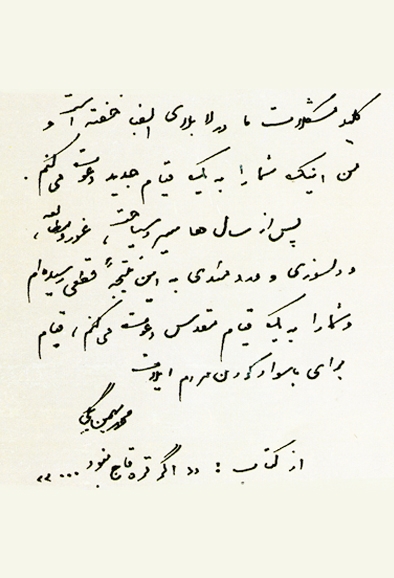 کلید مشکلات ما در لا بلای الفبا خفته است و
من اینک شما را به یک قیام جدید دعوت می کنم.
پس از سال ها سیر و سیاحت، غور و مطالعه،
و دلسوزی و دردمندی به این نتیجهٔ قطعی رسیده ام
و شما را به یک قیام مقدس دعوت می کنم، قیام
برای باسواد کردن مردم ایلات
محمد بهمن بیگی
از کتاب : «اگر قره قاج نبود ...»